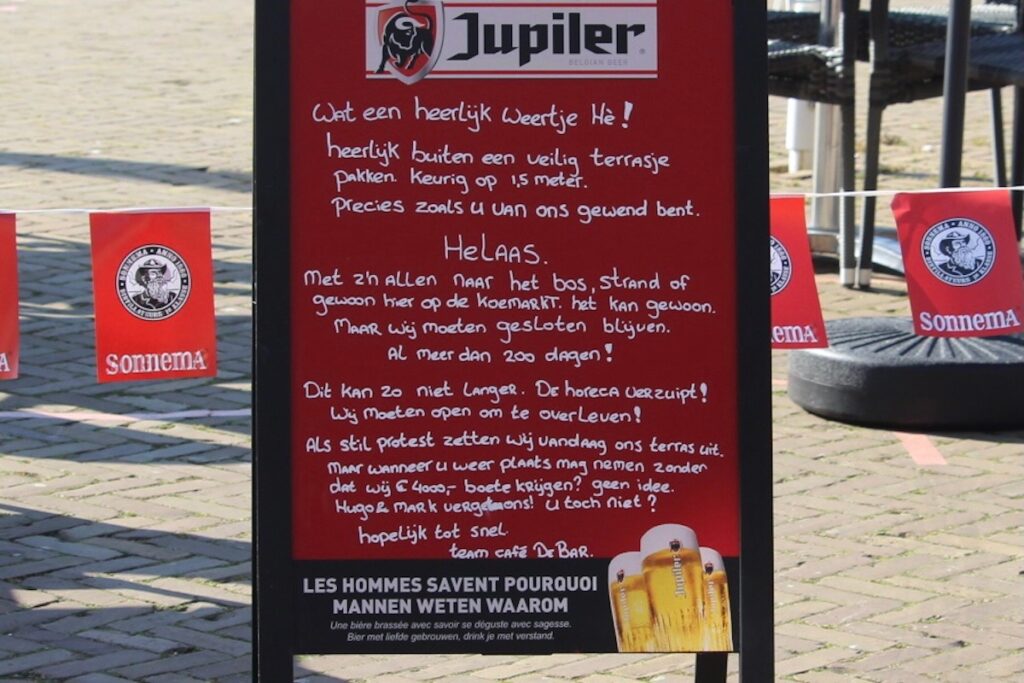 Jupiler
BELGIAN BEER
Wat een heerlijk weertje Hè!
heerlijk buiten een veilig terrasje
pakken. Keurig op 1,5 meter.
Precies zoals u van ons gewend bent.
HELAAS.
Met z'n allen naar het bos, strand of
gewoon hier op de Koemarkt. het kan gewoon.
Maar wij moeten gesloten blijven.
Al meer dan 200 dagen!
Dit kan zo niet langer. De horeca verzuipt!
Wij moeten open om te overleven!
Als stil protest zetten wij vandaag ons terras uit.
Maar wanneer u weer plaats mag nemen zonder
dat wij € 4000,- boete krijgen? geen idee.
Hugo & Mark ons! u toch niet?
hopelijk tot snel.
team café De Bar.
LES HOMMES SAVENT POURQUOI
MANNEN WETEN WAAROM
Une bière brassée avec savoir se déguste avec sagesse.
Bier met liefde gebrouwen, drink je met verstand.
Jupiler
SONNEMA • ANNO 1860
sonnema
sonnema
ema
A